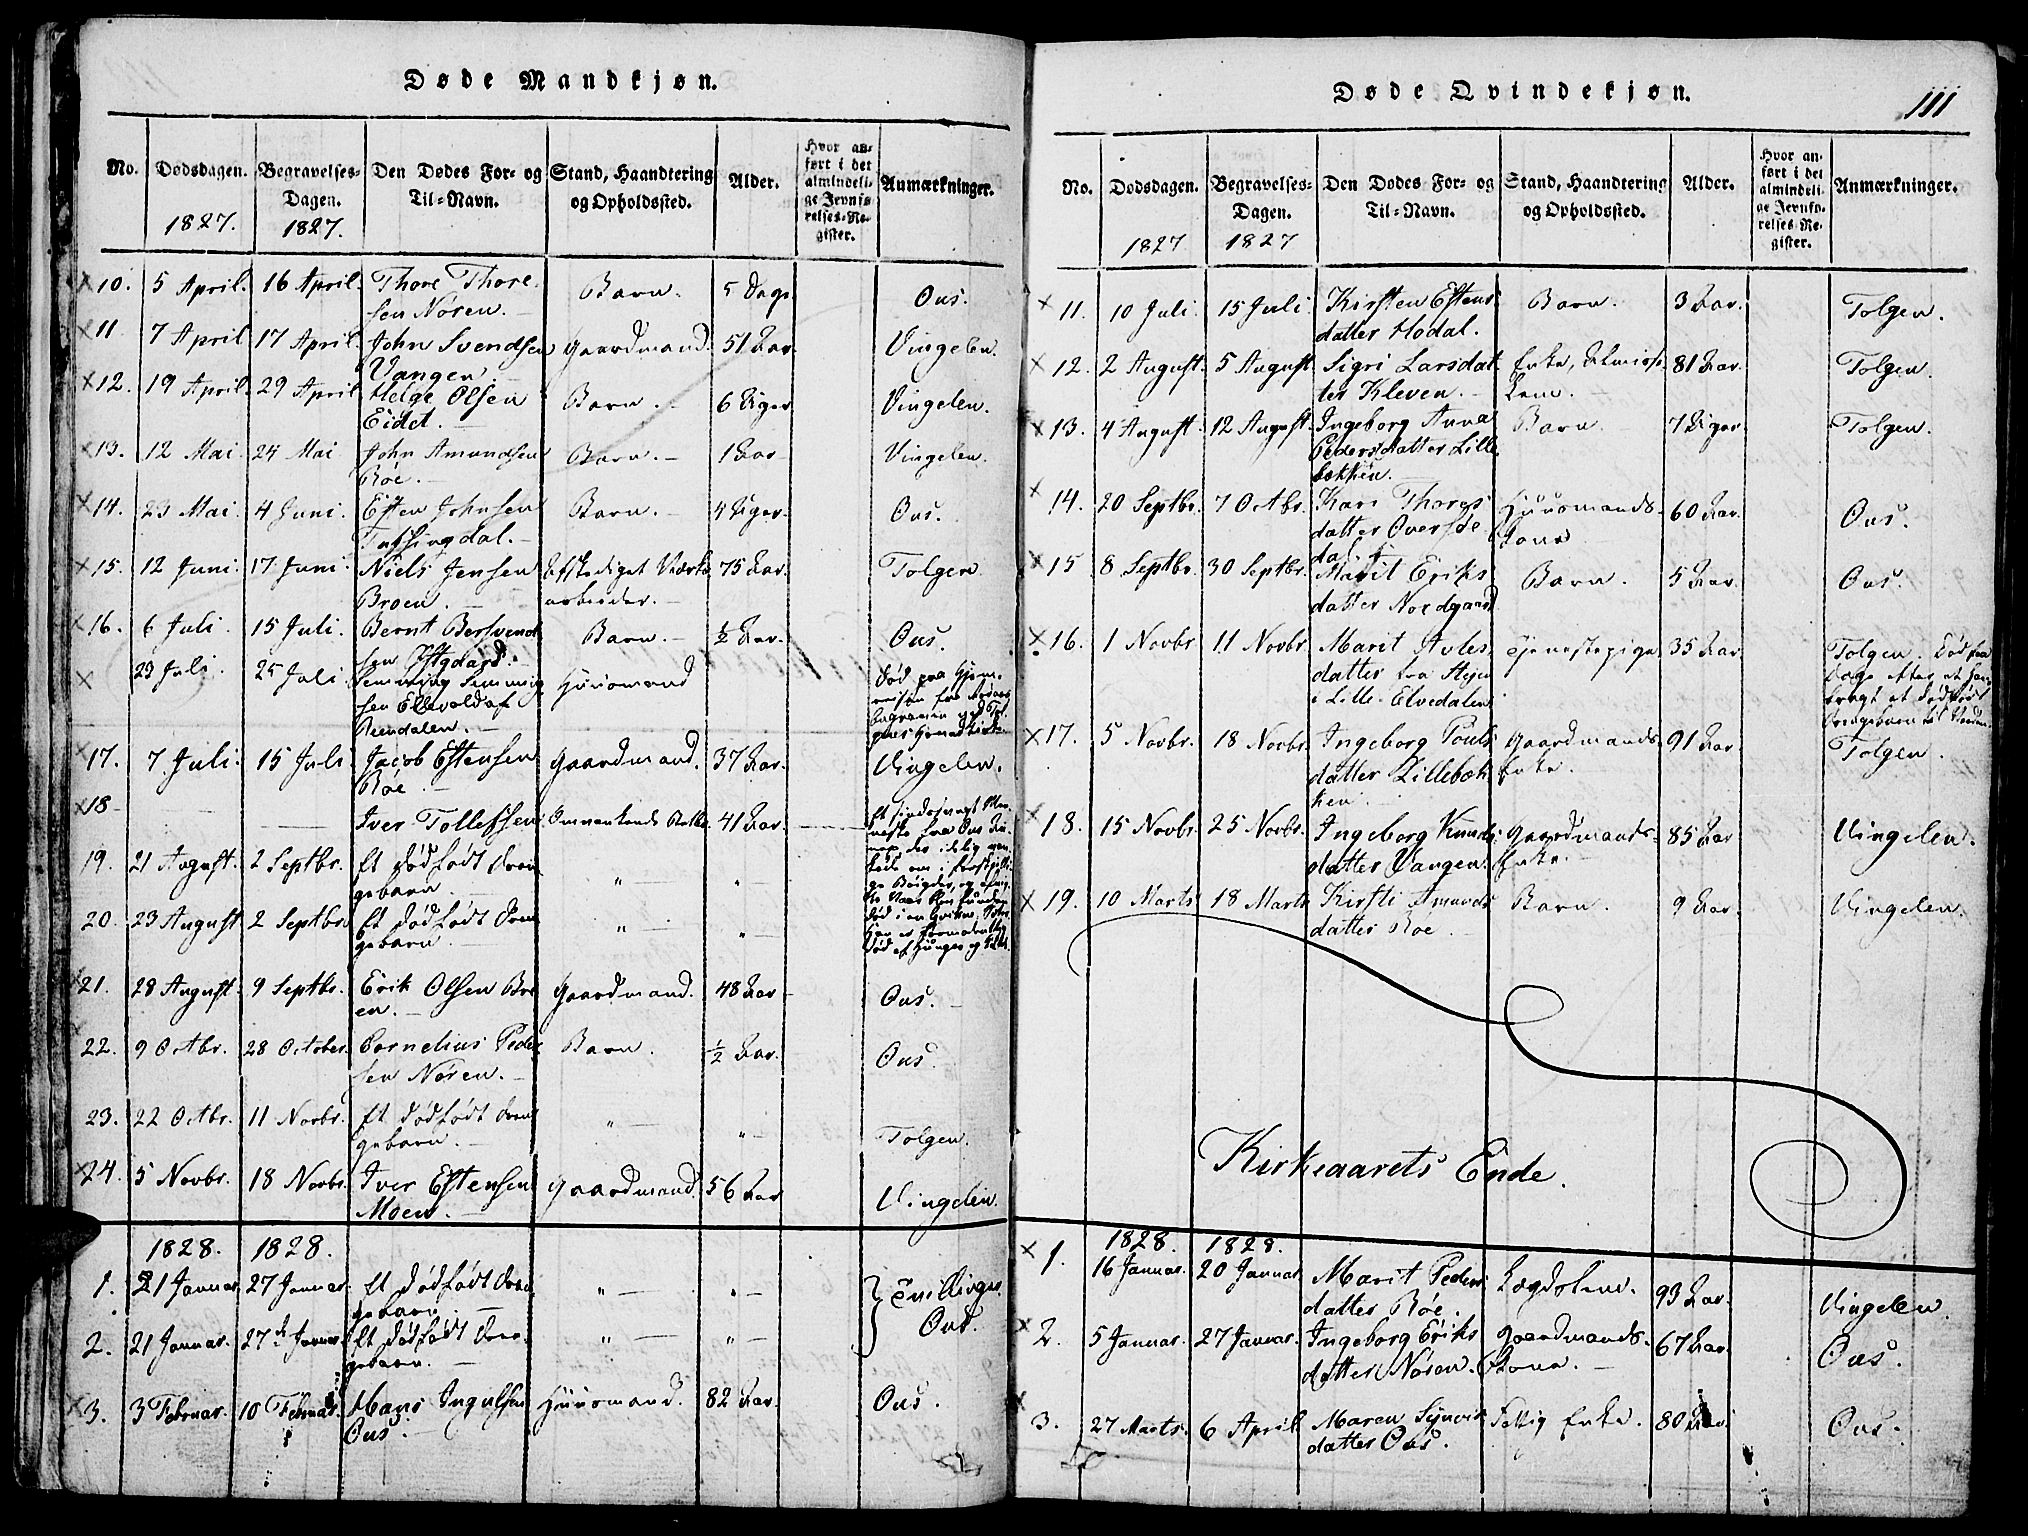 Døde Mandkjøn.
No. Dødsdagen. Begravelses-Dagen. Den Dødes For- og Til-Navn. Stand, Haandtering og Opholdssted. Alder. Hvor anført i det almindelige Jevnførelses-Register. Anmærkninger.
1827. 1827.
10. 5 April. 16 April. Thore Thore- Barn. 5 Dage Ous.
sen Nøren.
11 7 April 17 April John Svendsen Gaardmand. 51 Aar. Vingelen.
Vangen.
12. 19 April. 29 April Helge Olsen Barn. 6 Uger Vingelen.
Eidet.
13. 12 Mai. 24 Mai John Amundsen Barn. 1 Aar Vingelen.
Røe.
14. 23 Mai. 4 Juni. Esten Johnsen Barn. 4 Uger. Ous.
15. 12 Juni 17 Juni Niels Jensen Afskediget Værks- 75 Aar. Tolgen
Broen. arbeider.
16. 6 Juli. 15 Juli. Bernt Bersvend- Barn. ½ Aar. Ous.
sen
23 Juli. 25 Juli Semming Semming- Huusmand Død paa Hjem-
sen
17. 7 Juli. 15 Juli Jacob Estensen Gaardmand. 37 Aar. Vingelen.
Røe.
18 Iver Tollefsen 41 Aar.
19. 21 August. 2 Septbr. Et dødfødt Dren- " "
gebarn.
20. 23 August 2 Septbr Et dødfødt Dren- " "
gebarn.
død af Hunger og
21. 28 August. 9 Septbr. Erik Olsen Bro- Gaardmand. 48 Aar Ous.
en.
22. 9 Octbr. 28 October. Cornelius Peder- Barn. ½ Aar. Ous.
sen Nøren.
23. 22 Octbr. 11 Novbr. Et dødfødt Dren- " " Tolgen.
gebarn.
24. 5 Novbr. 18 Novbr. Iver Estensen Gaardmand. 56 Aar Vingelen.
Moen.
1828. 1828.
1. 21 Januar. 27 Januar. Et dødfødt Dren- " " Tvillinger
gebarn
2. 21 Januar. 27de Januar Et dødfødt Dren- " " Ous.
gebarn.
3. 3 Februar. 10 Februar. Hans Ingulfsen Huusmand. 82 Aar. Ous.
Ous.
Døde Qvindekjøn.
111
No. Dødsdagen. Begravelses-Dagen. Den Dødes For- og Til-Navn. Stand, Haandtering og Opholdssted. Alder. Hvor anført i det almindelige Jevnførelses-Register. Anmærkninger.
1827 1827
11. 10 Juli. 15 Juli. Kirsten Estens- Barn. 3 Aar. Tolgen.
datter Hodal.
12. 2 August. 5 August Sigri Larsdat- Enke, Almisse- 81 Aar. Tolgen.
ter Kleven. Lem.
13. 4 August. 12 August. Ingeborg Anna Barn. 7 Uger. Tolgen.
Pedersdatter Lille-
bækken.
14. 20 Septbr. 7 Octbr. Kari Thores- Huusmands- 60 Aar. Ous.
datter Kone
15 8 Septbr. 30 Septbr. Marit Eriks- Barn. 5 Aar. Ous.
datter Nordgaard
16. 1 Novbr 11 Novbr Marit Tjenestepige 35 Aar. Tolgen. Død faa
datter fra Dage efter at have
i Lille-Elvedalen bragt et dødfødt
Drengebarn til Verden.
17. 5 Novbr. 18 Novbr. Ingeborg Pouls- Gaardmands- 91 Aar. Tolgen.
datter Lillebæk- Enke.
ken.
18. 15 Novbr. 25 Novbr. Ingeborg Knuds- Gaardmands- 85 Aar Vingelen.
datter Vangen. Enke.
19. 10 Marts 18 Marts Kirsti Amunds- Barn. 9 Aar. Vingelen.
datter Røe.
Kirkeaarets Ende.
1828. 1828.
1. 16 Januar. 20 Januar. Marit Peders- Lægdslem. 93 Aar. Vingelen.
datter Røe.
2. 5 Januar. 27 Januar. Ingeborg Eriks- Gaardmands- 67 Aar. Ous.
datter Nøren. Kone.
3. 27 Marts. 6 April Maren Fattig Enke. 80 Aar. Ous.
datter Ous.